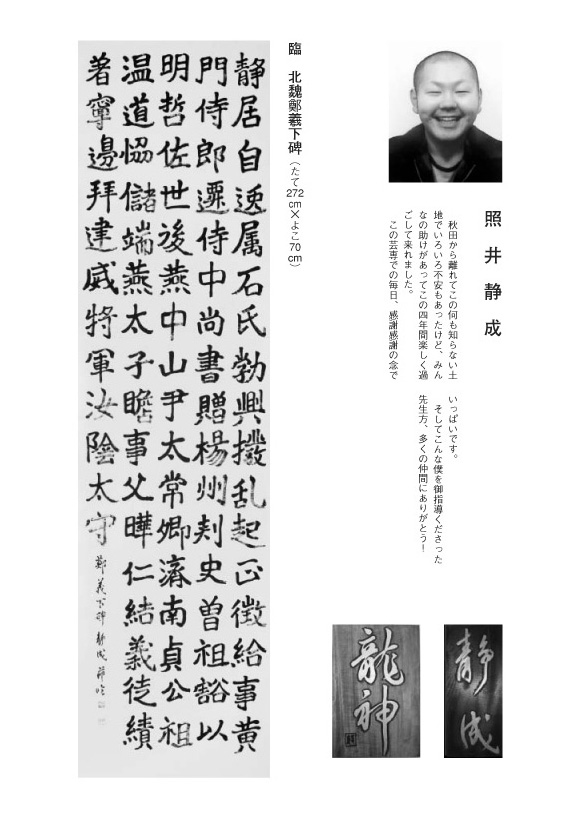 照井静成
秋田から離れてこの何も知らない土
地でいろいろ不安もあったけど、みん
なの助けがあってこの四年間楽しく過
ごして来れました。
この芸専での毎日、感謝感謝の念で
いっぱいです。
そしてこんな僕を御指導くださった
先生方、多くの仲間にありがとう！
静成
龍神
臨　北魏鄭羲下碑（たて272cm×よこ70cm）
静居自逸属石氏勃興撥乱起正徴給事黄
門侍郎遷侍中尚書贈楊州刾史曽祖豁以
明哲佐世後燕中山尹太常卿済南貞公祖
温道恊儲端燕太子瞻事父曄仁結義徒績
著寧邊拜建威将軍汝陰太守
鄭羲下碑 静成節臨